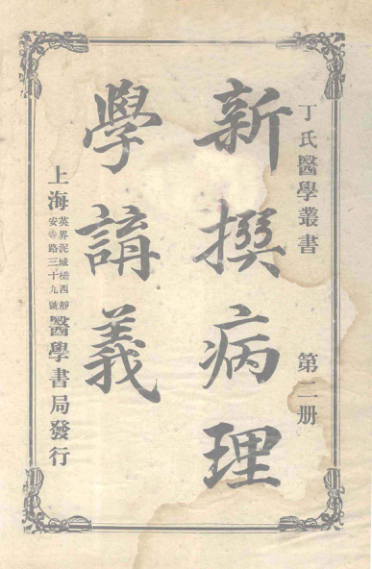 丁氏醫學叢書 第二册
新撰病理
學講義
上海英界泥城橋西靜安寺路三十九號醫學書局發行